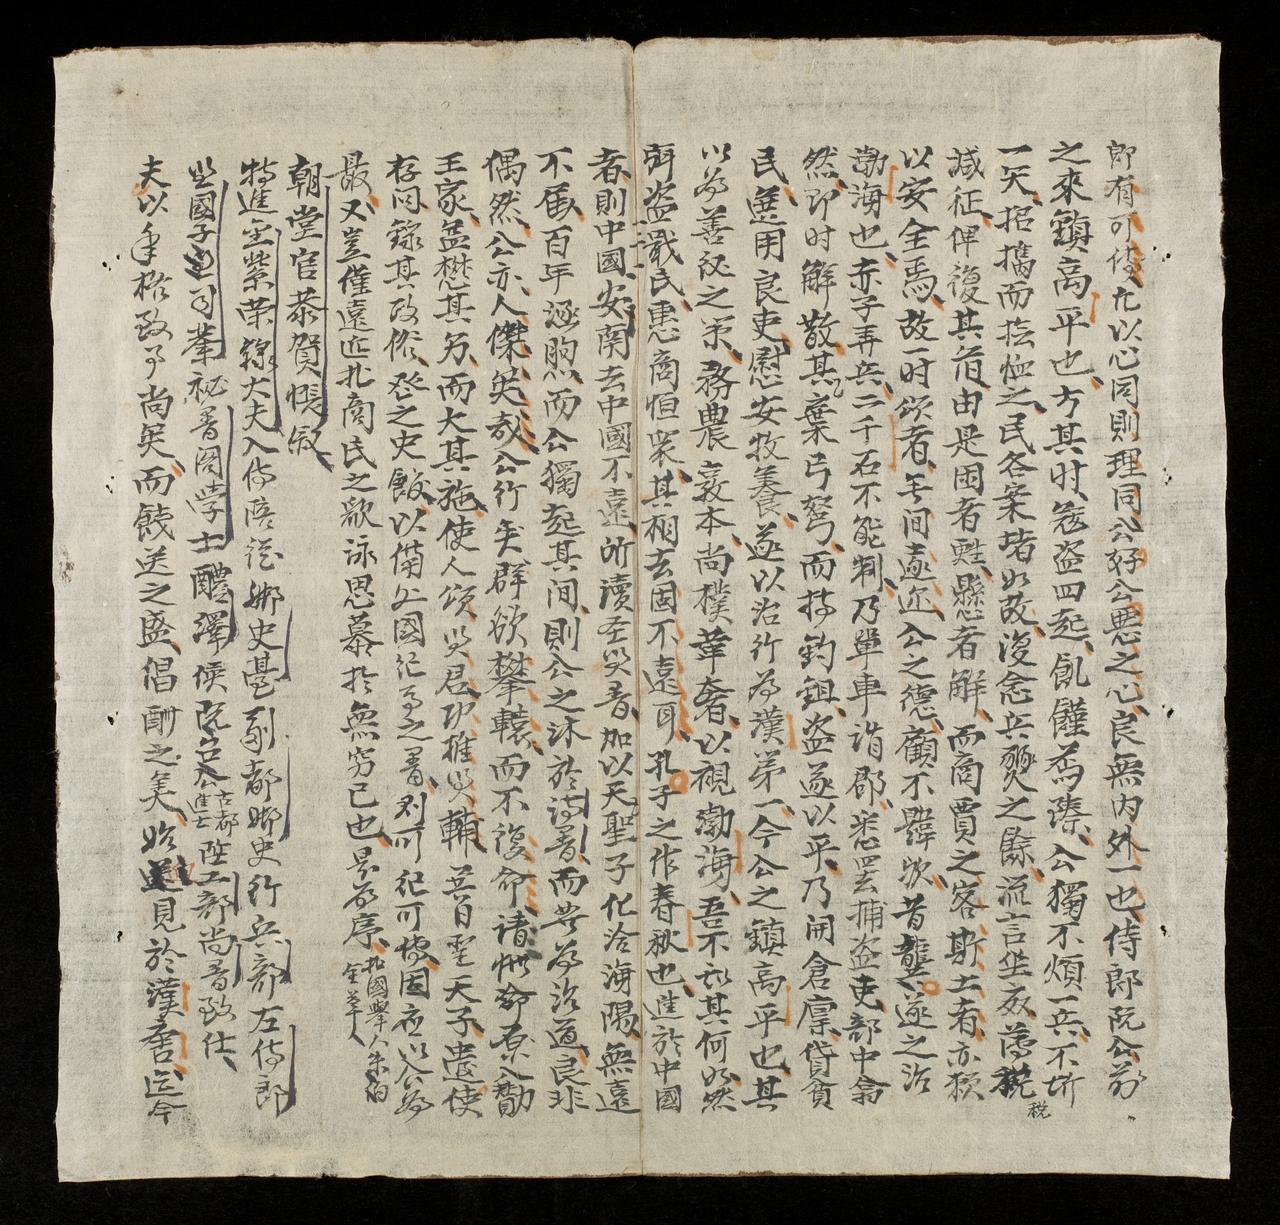 即有可傳尤以心同則理同公好公惡之心良無內外一也侍郎阮公前
之來鎮高平也方其时寇盗四起飢饉荐臻公獨不煩一兵不折
一矢招攜而撫恤之民各案堵如故復念兵燹之餘流言坐寇薄税
税
減征俾復其前由是困者甦懸者解而商賈之客斯土者亦頼
以安全焉故一时頌者無間遠近公之德顧不韙欤昔龔遂之治
渤海也赤子弄兵二千石不能制乃單車詣郡悉罢捕盗吏部中翕
然即时解散其棄弓弩而持鈎鉏盗遂以平乃開倉廪貸貧
民選用良吏慰安牧養遂以治行為漢第一今公之鎮高平也其
以為善後之策務農敦本尚樸革奢以視渤海吾不知其何如然
弭盗戢民惠商恒衆其相去固不遠耳孔子之作春秋也進於中國
者則中國安南去中國不遠所讀圣贤書加以天聖子化洽海陽無遠
不届百年涵煦而公獨起其間則公之沐於詩書而共為治道良非
偶然公亦人傑矣哉公行矣群欲攀轅而不復命诸惟命奈入勤
王家益懋其勞而大其施使人頌贤君功推贤輔 异日聖天子遣使
存问錄其政俗登之史館以備外國纪事之書列可纪可據固应以公為
最又豈僅遠近北商民之歌詠思慕於無穷已也是為序北國舉人朱泊全草
朝堂官恭賀帳叙
特進金紫荣祿大夫入侍陪從御史臺副都御史行兵部左侍郎
兼國子監司業祕書阁學士醴澤侯阮名公古都進士陞工部尚書致仕
夫以年格致事尚矣而餞送之盛倡酬之美始見於漢書迄今